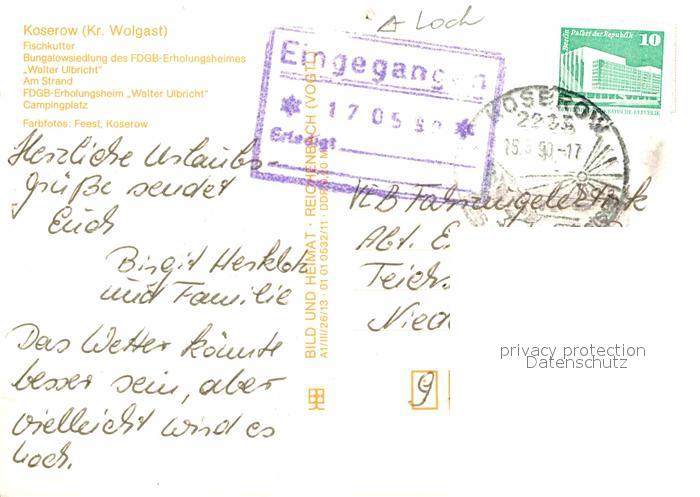 Koserow (Kr. Wolgast)
Fischkutter
Bungalowsiedlung des FDGB-Erholungsheimes
„Walter Ulbricht"
Am Strand
FDGB-Erholungsheim „Walter Ulbricht"
Campingplatz
Farbfotos: Feest, Koserow
Herzliche Urlaubs-
grüße sendet
Euch
Birgit Herklotz
und Familie
Das Wetter könnte
besser sein, aber
vielleicht wird es
noch.
BILD UND HEIMAT · REICHENBACH (VOGTL)
A1/III/26/13 · 01 01 0532/11 · DDR 0,20 M
A Loch
Eingegangen
17 05 90
Erledigt
Berlin Palast der Republik 10
KOSEROW
2225
90-17
VEB
Abt. E
Teich
Nied
9
privacy protection
Datenschutz